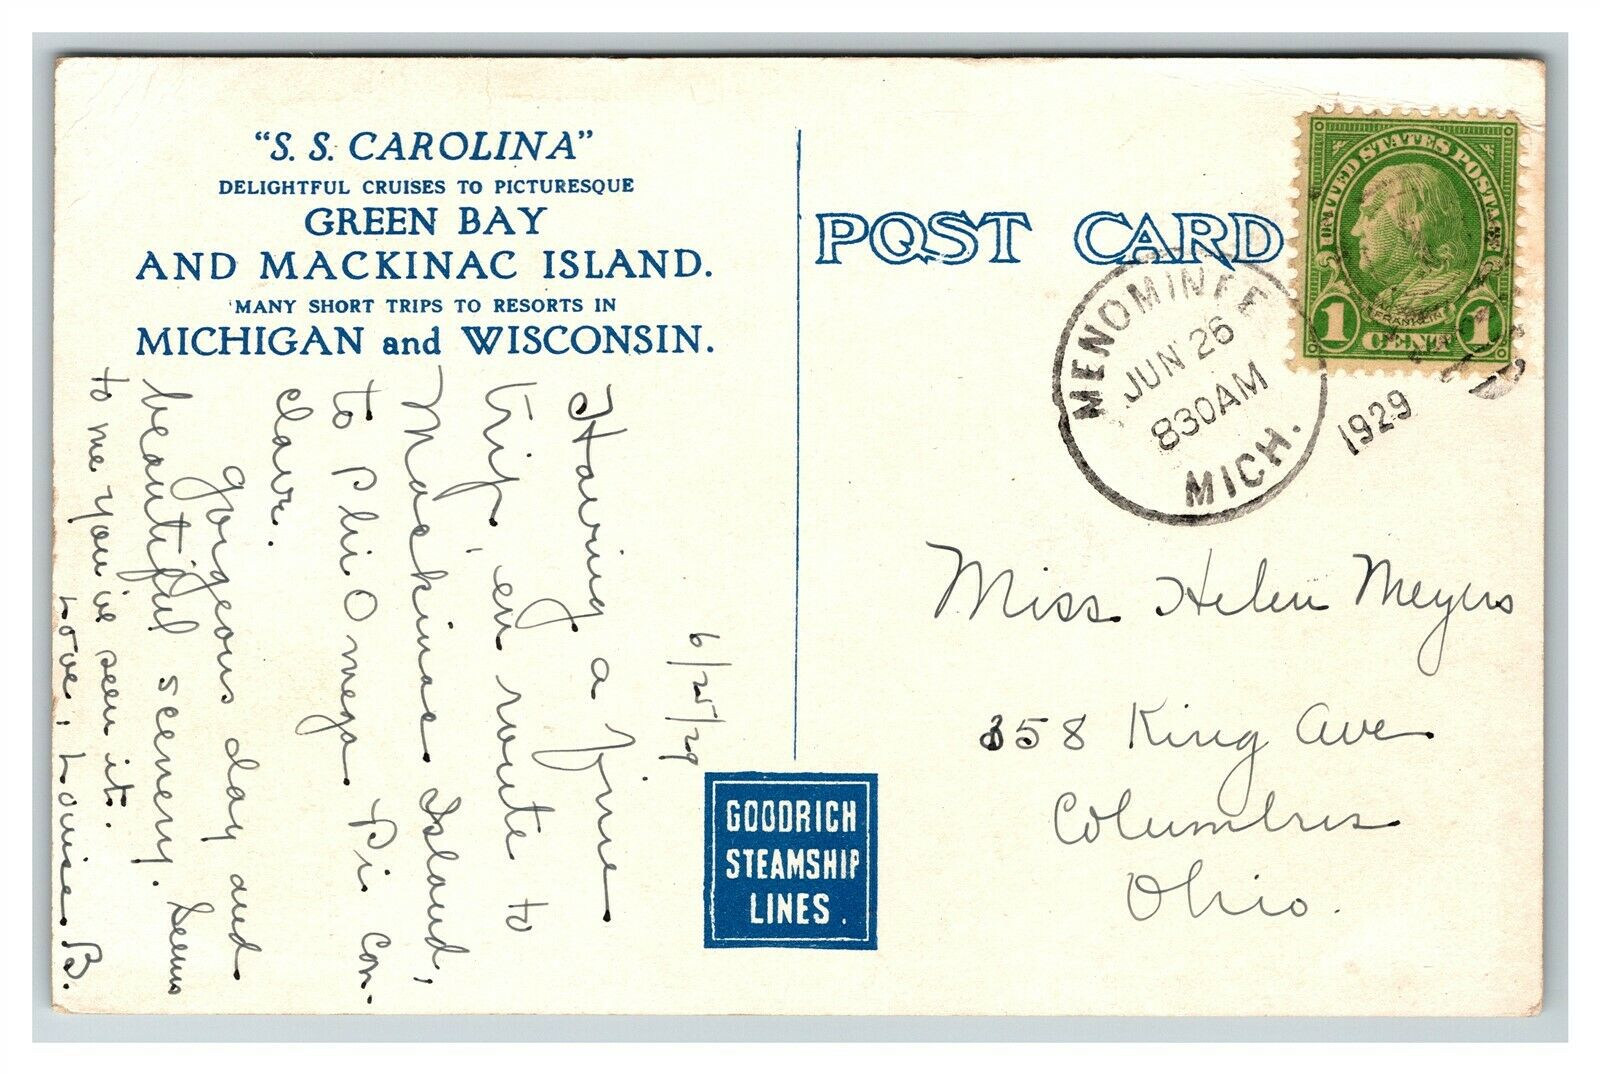 "S. S. CAROLINA"
DELIGHTFUL CRUISES TO PICTURESQUE
GREEN BAY
AND MACKINAC ISLAND.
MANY SHORT TRIPS TO RESORTS IN
MICHIGAN and WISCONSIN.
6/25/29
Having a fine
trip en route to
Mackinac Island,
to Phi Omega Pi con-
clave.
gorgeous day and
beautiful scenery. Seems
to me you've seen it.
Love, Louise B.
GOODRICH
STEAMSHIP
LINES.
POST CARD
UNITED STATES POSTAGE
FRANKLIN
1 CENT 1
MENOMINEE
JUN 26
830AM
MICH.
1929
Miss Helen Meyers
358 King Ave
Columbus
Ohio.